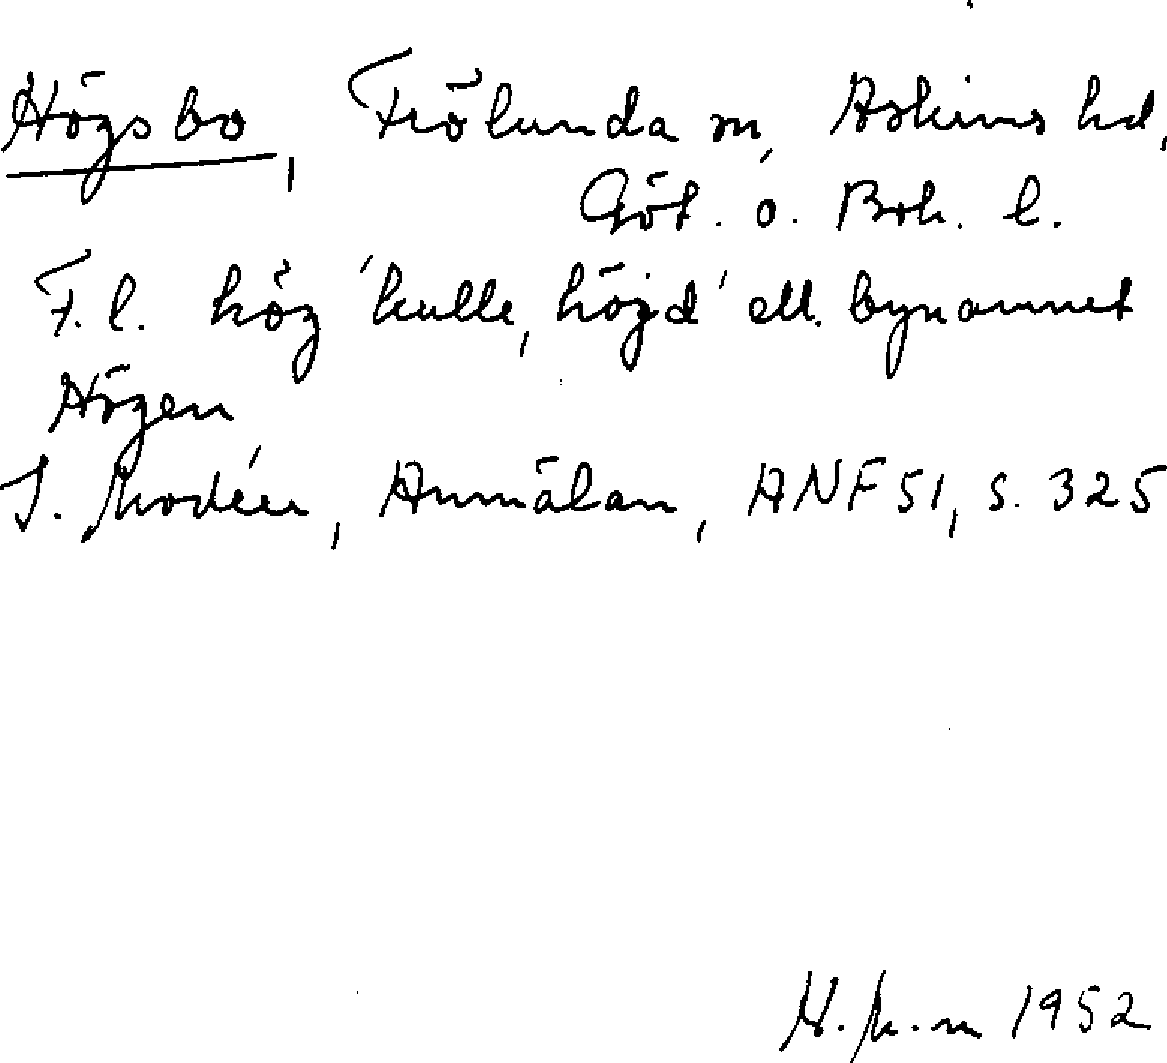 Högsbo, Frölunda sn, Askims hd,
Göt. o. Boh. l.
F.l. hög 'kulle, höjd' ell. bynamnet
Högen
I. Modéer, Anmälan, ANF 51, s. 325
1952